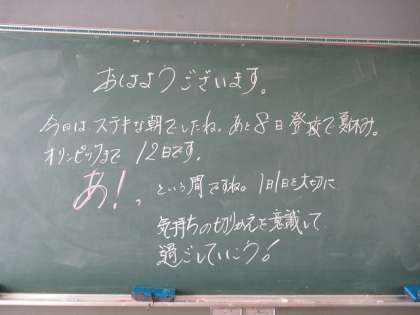 おはようございます。
今日はステキな朝でしたね。あと8日登校で夏休み。
オリンピックまで 12日です。
あ！っ という間ですね。1日1日を大切に
気持ちの切りかえを意識して
過ごしていこう！